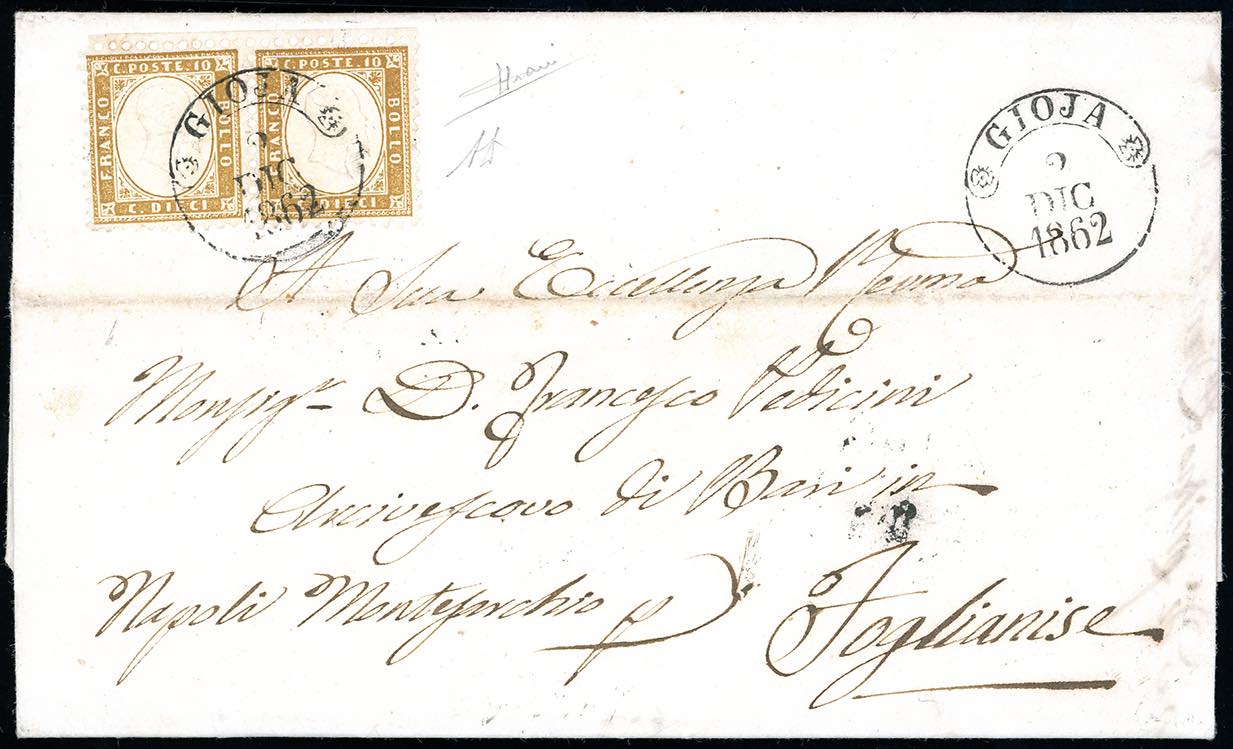 C. POSTE. 10 C. POSTE. 10
FRANCO BOLLO FRANCO BOLLO
C. DIECI C. DIECI
GIOJA
2
DIC
1862
GIOJA
2
DIC
1862
A Sua Eccellenza Revma
Monsigr D. Francesco Pedicini
Arcivescovo di Bari in
Napoli Montesarchio p Foglianise